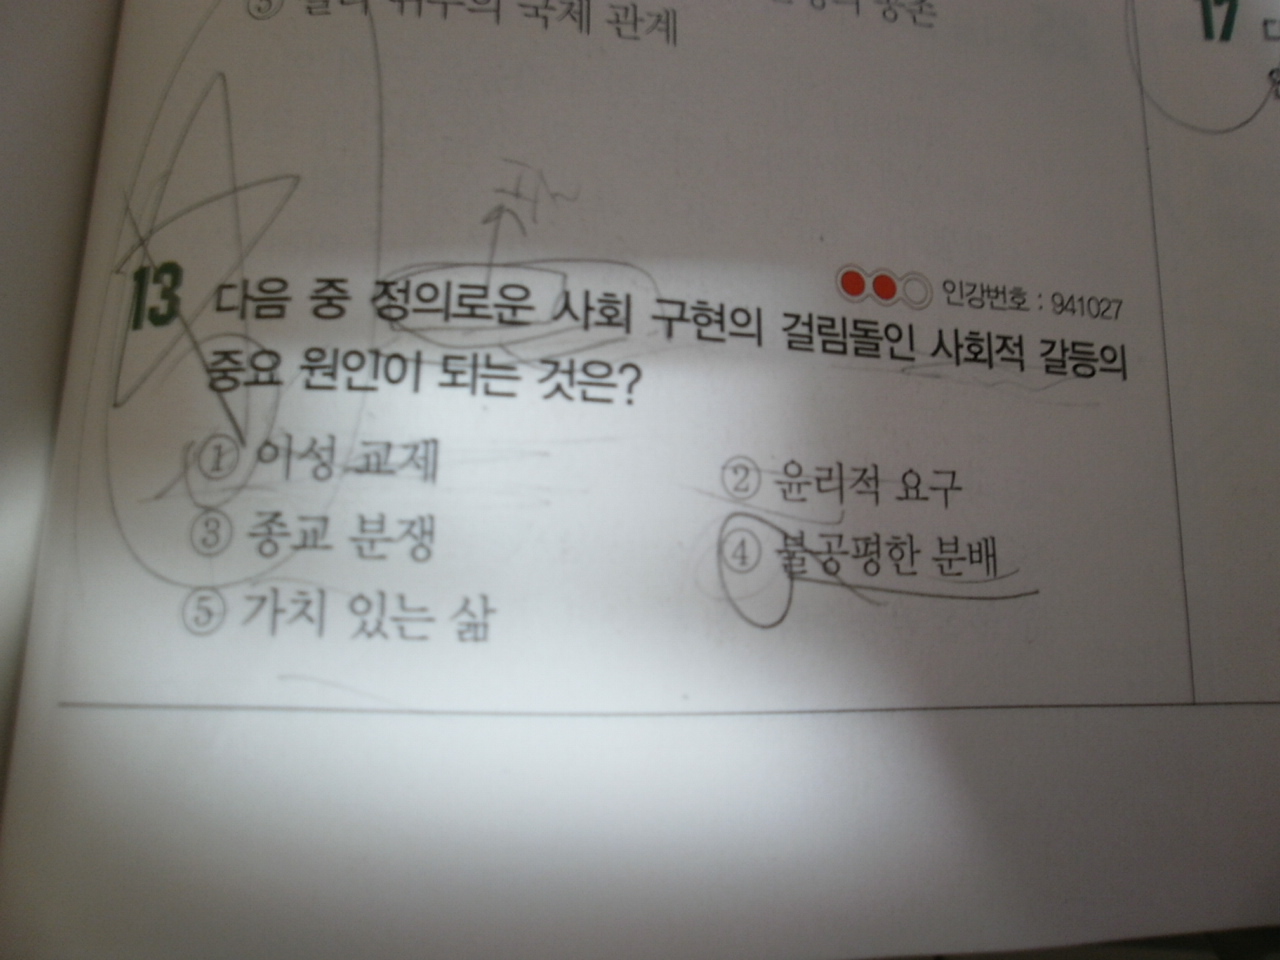 국제 관계
17
13 다음 중 정의로운 사회 구현의 걸림돌인 사회적 갈등의
인강번호 : 941027
중요 원인이 되는 것은?
① 이성 교제
② 윤리적 요구
③ 종교 분쟁
④ 불공평한 분배
⑤ 가치 있는 삶